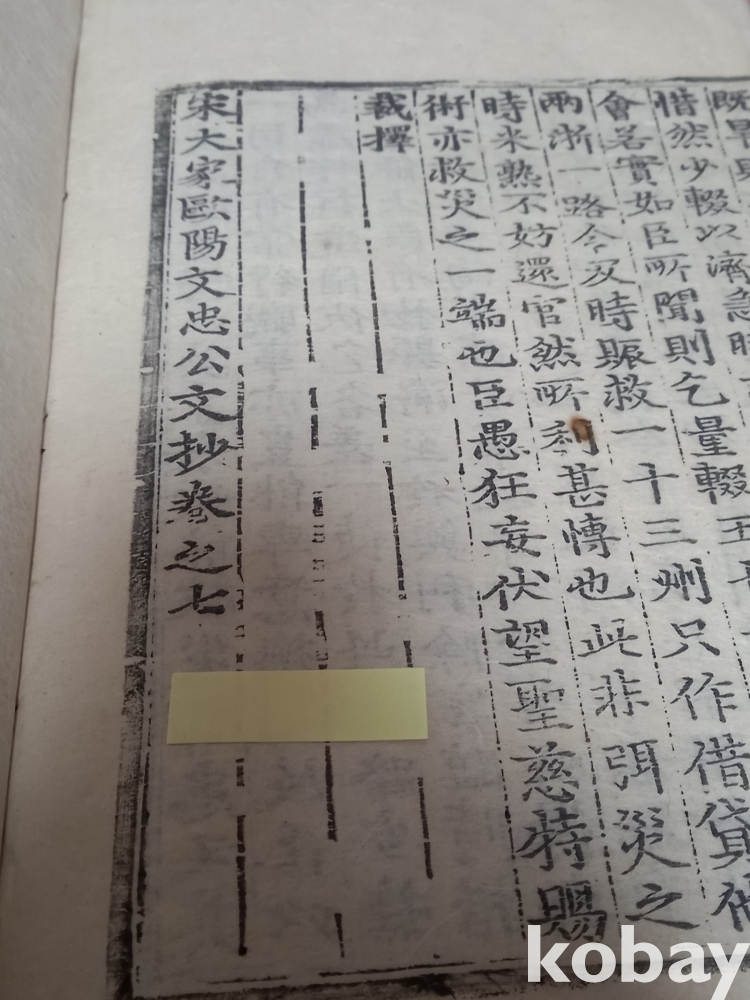 惜然少輟以濟急時
會若實如臣所聞則乞量輟五
兩浙一路今及時賑救一十三州只作借貸他
時米熟不妨還官然所利甚博也此非弭災之
術亦救災之一端也臣愚狂妄伏望聖慈特賜
裁擇
宋大家歐陽文忠公文抄卷之七
kobay